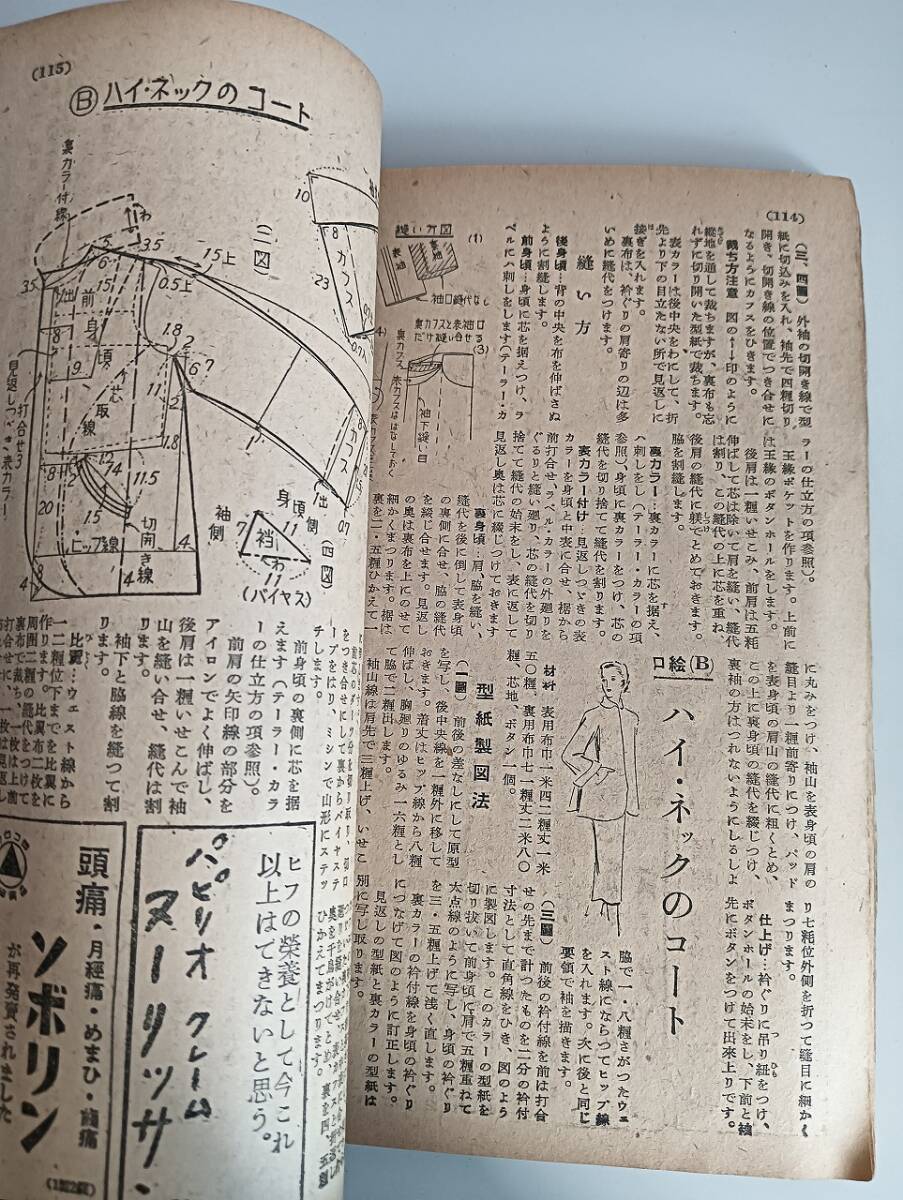 (114)
(三、四圖) 外袖の切開き線で型
紙に切込みを入れ、袖先で四糎切り
開き、切開き線の位置でつき合せに
なるようにカフスをひきます。
裁ち方注意 図の←→印のように
縦地を通して裁ちますが、裏布も忘
れずに切り開いた型紙で裁ちます。
表カラーは後中央をわにして、折
先より下の目立たない所で見返しに
接ぎを入れます。
裏布は、衿ぐりの肩寄りの辺は多
いめに縫代をつけます。
縫い方
後身頃…背の中央を布を伸ばさぬ
ように割縫します。
前身頃…身頃に芯を据えつけ、ラ
ペルにハ刺しをします(テーラー・カ
ラーの仕立方の項参照)。
玉縁ポケットを作ります。上前に
は玉縁のボタンホールをします。
後肩は一糎いせこみ、前肩は五粍
伸ばして芯は除いて肩を縫い、縫代
は割り、この縫代の上に芯を重ね、
後肩の縫代に躾でとめておきます。
脇を割縫します。
裏カラー…裏カラーに芯を据え、
ハ刺しを(テーラー・カラーの項
参照)、身頃に裏カラーをつけ、芯の
縫代を切り捨てて縫代を割ります。
表カラー付け…見返しつゞきの表
カラーを身頃と中表に合せ、裾から
前打合せ、ラペル、カラーの外廻りを
ぐるりと縫い廻り、芯の縫代を切り
捨てて縫代の始末をし、表に返して
見返し奥は芯に綴じつけておきます
裏身頃…肩、脇を縫い、
縫代を後に倒して表身頃
の裏側に合せ、脇の縫代
を綴じ合せます。見返し
の奥は裏布を上にのせて
細かくまつります。裾は
裏を二・五糎ひかえて一
に丸みをつけ、袖山を表身頃の肩の
縫目より一糎前寄りにつけ、パッド
を表身頃の肩山の縫代に粗くとめ、
この上に裏身頃の縫代を綴じつけ、
裏袖の方はつれないようにしるしよ
り七粍位外側を折つて縫目に細かく
まつります。
仕上げ…衿ぐりに吊り紐をつけ、
ボタンホールの始末をし、下前と袖
先にボタンをつけて出來上りです。
縫い方図
(1)
裏袖
表袖
袖口縫代なし
裏カフスと表袖口だけ縫い合せる
(3)
袖下縫い目
口絵(B)
ハイ・ネックのコート
材料 表用布巾一米四二糎丈一米
五〇糎、裏用布巾七一糎丈二米八〇
糎、芯地、ボタン一個。
型紙製図法
(一圖) 前後の差なしにして原型
を写し、後中央線を一糎外に移して
おきます。着丈はヒップ線から八糎
伸ばし、胸廻りのゆるみ一六糎とし
て脇で二糎出します。
袖山線は肩先で三糎上げ、いせこ
脇で一・八糎さがつたウェ
スト線にならつてヒップ線
を入れます。次に後と同じ
要領で袖を描きます。
(三圖) 前後の衿付線を前は打合
せの先まで計つたものを二分の衿付
寸法として直角線をひき、図のよう
に製図します。このカラーの型紙を
切り抜いて前身頃に肩で五糎重ねて
太点線のように写し、身頃の衿ぐり
を三・五糎上げて浅く直します。
裏カラーの衿付線を身頃の衿ぐり
につなげて図のように訂正します。
見返しの型紙と裏カラーの型紙は
別に写し取ります。
(115)
Ⓑハイ・ネックのコート
裏カラー付線
(二図)
わ
35
15上
0.5上
前身頃芯取線
見返しつゞき表カラー
打合せ3
切開き線
ヒップ線
カフス
10
8
23
1.8
11.5
15
20
4
袖側
身頃側
11
7
襠
わ
(バイヤス)
(四図)
チします。
前身頃の裏側に芯を据
えます(テーラー・カラ
ーの仕立方の項参照)。
前肩の矢印線の部分を
アイロンでよく伸ばし、
後肩は一糎いせこんで袖
山を縫い合せ、縫代は割
ります。
袖下と脇線を縫つて割
ります。
比翼…ウェスト線から
一二糎位下までを比翼に
作ります。比翼布二枚を
ヒフの榮養として今これ
以上はできないと思う。
パピリオ クレーム
ヌーリッサン
頭痛・月經痛・めまひ・齒痛
ソボリン
が再発賣されました